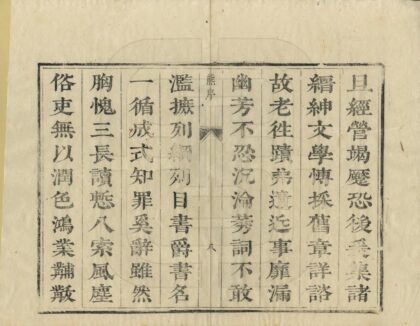 旦經管竭蹷恐後爰集諸
縉紳文學博採舊章詳諮
故老徃蹟弗遺近事靡漏
幽芳不忍沉淪莠詞不敢
熊序
濫摭列綱列目書爵書名
一循成式知罪奚辭雖然
胸愧三長讀慙八索風塵
俗吏無以潤色鴻業黼黻